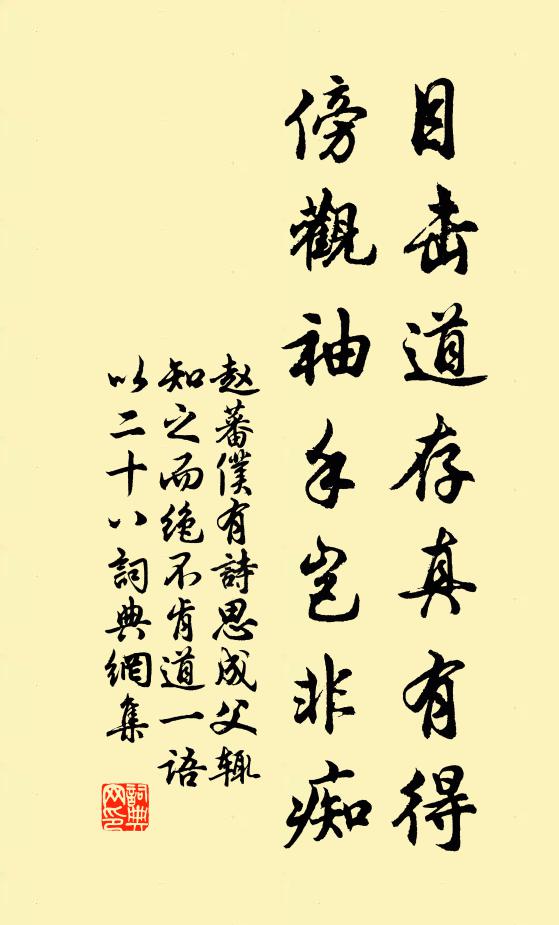 目击道存真有得
傍觀袖手岂非痴
赵蕃僕有詩思成父輒
知之而绝不肯道一语
以二十八詞典網集
詞典网印